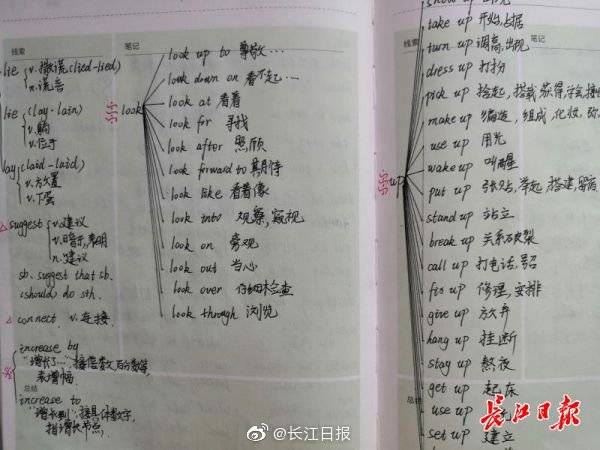 线索
笔记
lie { v. 撒谎 (lied-lied)
n. 谎言
lie (lay-lain)
v. 躺
v. 位于
lay (laid-laid)
v. 放置
v. 下蛋
suggest { v. 建议
v. 暗示, 表明
n. 建议
sb. suggest that sb.
(should) do sth.
connect v. 连接
increase by
"增长了…" 接倍数, 百分数等,
表增幅
总结
increase to
"增长到" 接具体数字,
指增长节点.
look
look up to 尊敬…
look down on 看不起…
look at 看着
look for 寻找
look after 照顾
look forward to 期待
look like 看着像
look into 观察, 窥视
look on 旁观
look out 当心
look over 仔细检查
look through 浏览
线索
笔记
up
show up
take up 开始, 占据
turn up 调高, 出现
dress up 打扮
pick up 捡起, 搭载, 获得
make up 编造, 组成, 化妆
use up 用光
wake up 叫醒
put up 张贴, 举起, 搭建
stand up 站立
break up 关系破裂
call up 打电话
fix up 修理, 安排
give up 放弃
hang up 挂断
stay up 熬夜
get up 起床
总结
use up
set up 建立
长江日报
@长江日报